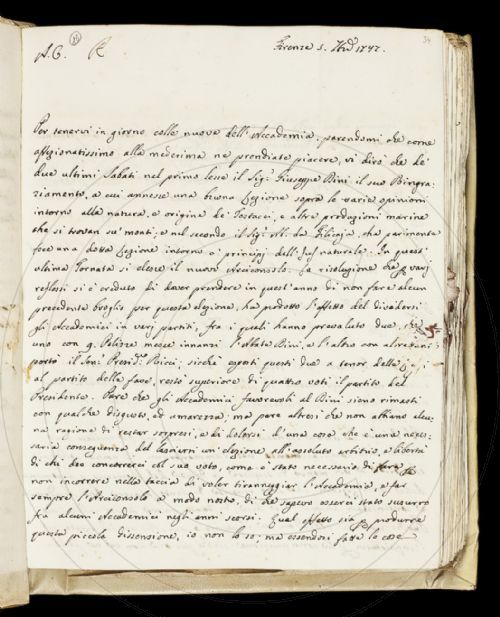 A. C. R
Firenze 5. 7bre 1747.
34
Per tenervi in giorno colle nuove dell'Accademia, parendomi che come
affezionatissimo alla medesima ne prendiate piacere, vi dirò che de'
due ultimi Sabati nel primo lesse il Sig. Giuseppe Bini il suo Ringra-
ziamento, a cui annesse una buona Lezione sopra le varie opinioni
intorno alla natura, e origine de' Testacei, e altre produzioni marine
che si trovan su' monti, e nel secondo il Sig. da Filicaja, che parimente
fece una dotta Lezione intorno a' principj dell'Jus naturale. In quest'
ultima Tornata si elesse il nuovo Arciconsolo. La risoluzione che p varj
riflessi si è creduto di dover prendere in quest'anno di non fare alcun
precedente broglio per questa elezione, ha prodotto l'effetto del dividersi
gli Accademici in varj partiti, fra i quali hanno prevaluto due, che
uno con 9. Polizze messe innanzi l'Abate Bini, e l'altro con altrettante
portò il Sen. Presid. Ricci; sicchè esposti questi due a tenor delle Leggi
al partito delle fave, restò superiore di quattro voti il partito del
Presidente. Pare che gli Accademici favorevoli al Bini sieno rimasti
con qualche disgusto, ed amarezza; ma pare altresì che non abbiano alcu-
na ragione di restar sorpresi, e di dolersi d'una cosa che è una neces-
saria conseguenza del lasciarsi un'elezione all'assoluto arbitrio, e libertà
di chi dee concorrerci col suo voto, come è stato necessario di fare p
non incorrere nella taccia di voler tiranneggiar l'Accademia, e far
sempre l'Arciconsolo a modo nostro, di che sapevo esserci stato susurro
fra alcuni Accademici negli anni scorsi. Qual effetto sia p produrre
questa piccola dissensione, io non lo so; ma essendosi fatte le cose